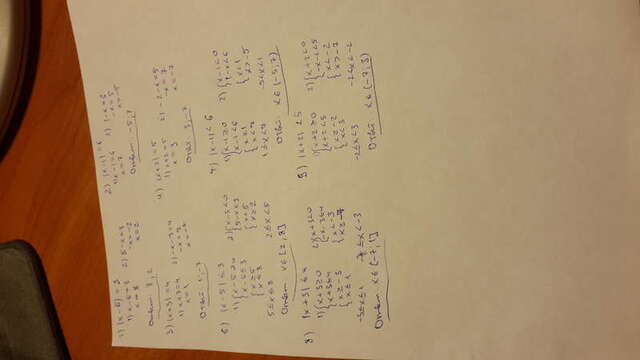 1) |x-5|=3
1) x-5=3
x=8
2) 5-x=3
-x=-2
x=2
Ответ: 8; 2
2) |x-1|=6
1) x-1=6
x=7
2) 1-x=6
-x=5
x=-5
Ответ: -5; 7
3) |x+3|=4
1) x+3=4
x=1
2) -x-3=4
-x=7
x=-7
Ответ: 1; -7
4) |x+2|=5
1) x+2=5
x=3
2) -2-x=5
-x=7
x=-7
Ответ: 3; -7
6) |x-5| ≤ 3
1) x-5≥0
x-5≤3
x≥5
x≤8
5≤x≤8
2) x-5<0
5-x≤3
x<5
x≥2
2≤x<5
Ответ: x∈[2; 8]
7) |x-1|<6
1) x-1≥0
x-1<6
x≥1
x<7
1≤x<7
2) x-1<0
1-x<6
x<1
x>-5
-5<x<1
Ответ: x∈(-5; 7)
8) |x+3| ≤ 4
1) x+3≥0
x+3≤4
x≥-3
x≤1
-3≤x≤1
2) x+3<0
-x-3≤4
x<-3
x≥-7
-7≤x<-3
Ответ: x∈[-7; 1]
9) |x+2|<5
1) x+2≥0
x+2<5
x≥-2
x<3
-2≤x<3
2) x+2<0
-x-2<5
x<-2
x>-7
-7<x<-2
Ответ: x∈(-7; 3)